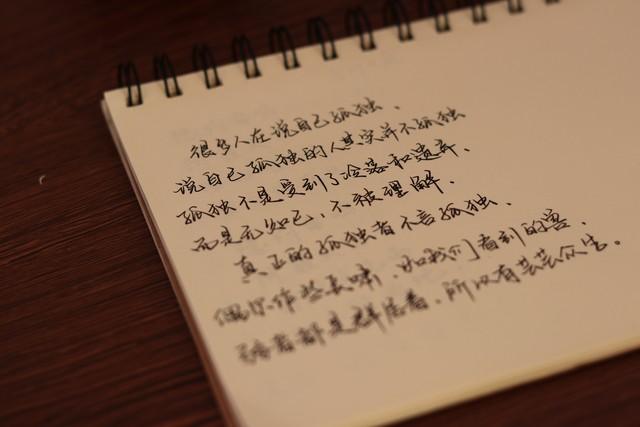 很多人在说自己孤独、
说自己孤独的人其实并不孤独
孤独不是受到了冷落和遗弃、
而是无知己、不被理解、
真正的孤独者不言孤独、
偶尔作些长啸、如我们看到的兽。
弱者都是群居着、所以有芸芸众生。